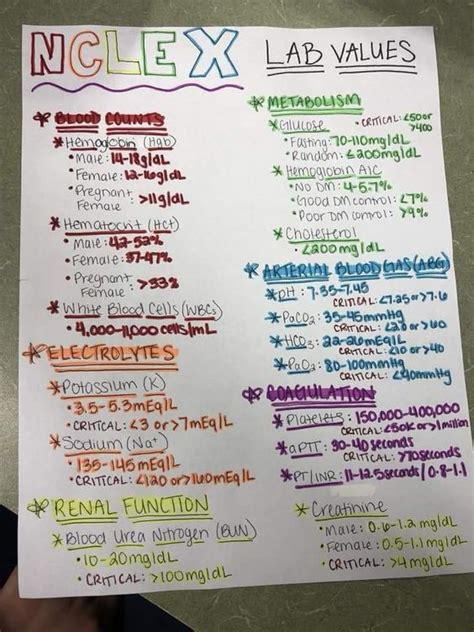 NCLEX
LAB VALUES
* BLOOD COUNTS
* Hemoglobin (Hgb)
• Male: 14-18g/dL
• Female: 12-16g/dL
• Pregnant
Female: >11g/dL
* Hematocrit (Hct)
• Male: 42-52%
• Female: 37-47%
• Pregnant
Female: >33%
* White Blood Cells (WBCs)
• 4,000-11,000 cells/mL
* ELECTROLYTES
* Potassium (K)
• 3.5-5.3mEq/L
• CRITICAL: <3 or >7mEq/L
* Sodium (Na+)
• 135-145 mEq/L
• CRITICAL: <120 or >160mEq/L
* RENAL FUNCTION
* Blood Urea Nitrogen (BUN)
• 10-20mg/dL
• CRITICAL: >100mg/dL
* METABOLISM
* Glucose
• CRITICAL: <50 or
>400
• Fasting: 70-110mg/dL
• Random: ≤200mg/dL
* Hemoglobin A1C
• No DM: 4-5.7%
• Good DM control: <7%
• Poor DM control: >9%
* Cholesterol
• <200mg/dL
* ARTERIAL BLOOD GAS (ABG)
* pH: 7.35-7.45
CRITICAL: <7.25 or >7.6
* PaCO2: 35-45mmHg
CRITICAL: <20 or >60
* HCO3: 22-26mEq/L
CRITICAL: <10 or >40
* PaO2: 80-100mmHg
CRITICAL: <40mmHg
* COAGULATION
* Platelets: 150,000-400,000
CRITICAL: <50K or >1 million
* aPTT: 30-40 seconds
CRITICAL: >70seconds
* PT/INR: 11-12.5seconds / 0.8-1.1
* Creatinine
• Male: 0.6-1.2 mg/dL
• Female: 0.5-1.1 mg/dL
• CRITICAL: >4mg/dL